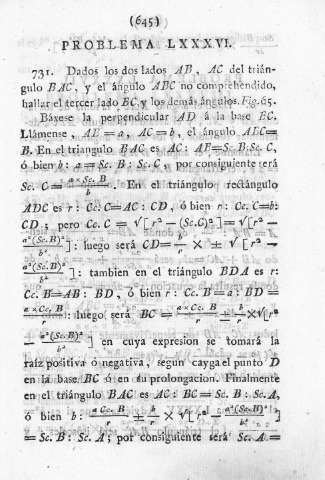 (645)
PROBLEMA LXXXVI.
731. Dados los dos lados AB, AC del trián-
gulo BAC, y el ángulo ABC no comprehendido,
hallar el tercer lado BC y los demás ángulos. Fig. 65.
Báxese la perpendicular AD á la base BC.
Llámense, AB = a, AC = b, el ángulo ABC=
B. En el triangulo BAC es AC: AB=Sc.B:Sc. C,
ó bien b: a = Sc. B: Sc. C, por consiguiente será
Sc. C = a × Sc. B / b. En el triángulo rectángulo
ADC es r: Cc. C=AC: CD, ó bien r: Cc. C=b:
CD; pero Cc. C = √[r² — (Sc.C)²]=√[r² —
a²(Sc. B)² / b²]: luego será CD= b/r × ± √ [r² —
a²(Sc. B)² / b²]: tambien en el triángulo BDA es r:
Cc. B=AB: BD, ó bien r: Cc. B=a: BD=
a × Cc. B / r: luego será BC = a × Cc. B / r ± b/r ×√[r²
— a²(Sc. B)² / b²] en cuya expresion se tomará la
raíz positiva ó negativa, segun cayga el punto D
en la base BC ó en su prolongacion. Finalmente
en el triángulo BAC es AC: BC = Sc. B: Sc. A,
ó bien b: a Cc. B / r ± b/r × √[r² — a²(Sc.B)² / b²]
= Sc. B: Sc. A; por consiguiente será Sc. A =